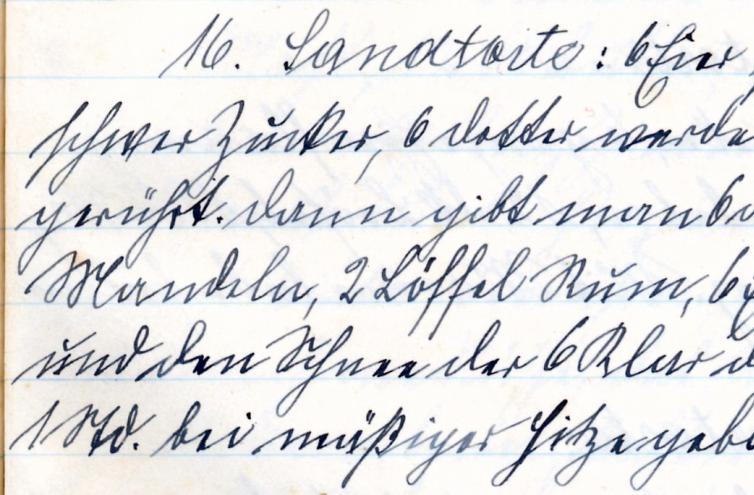 16. Sandtorte: 6 Eier
schwer Zucker, 6 Dotter werde
gerührt. Dann gibt man 6
Mandeln, 2 Löffel Rum, 6
und den Schnee der 6 Klar d
1 Std. bei mäßiger Hitze geba